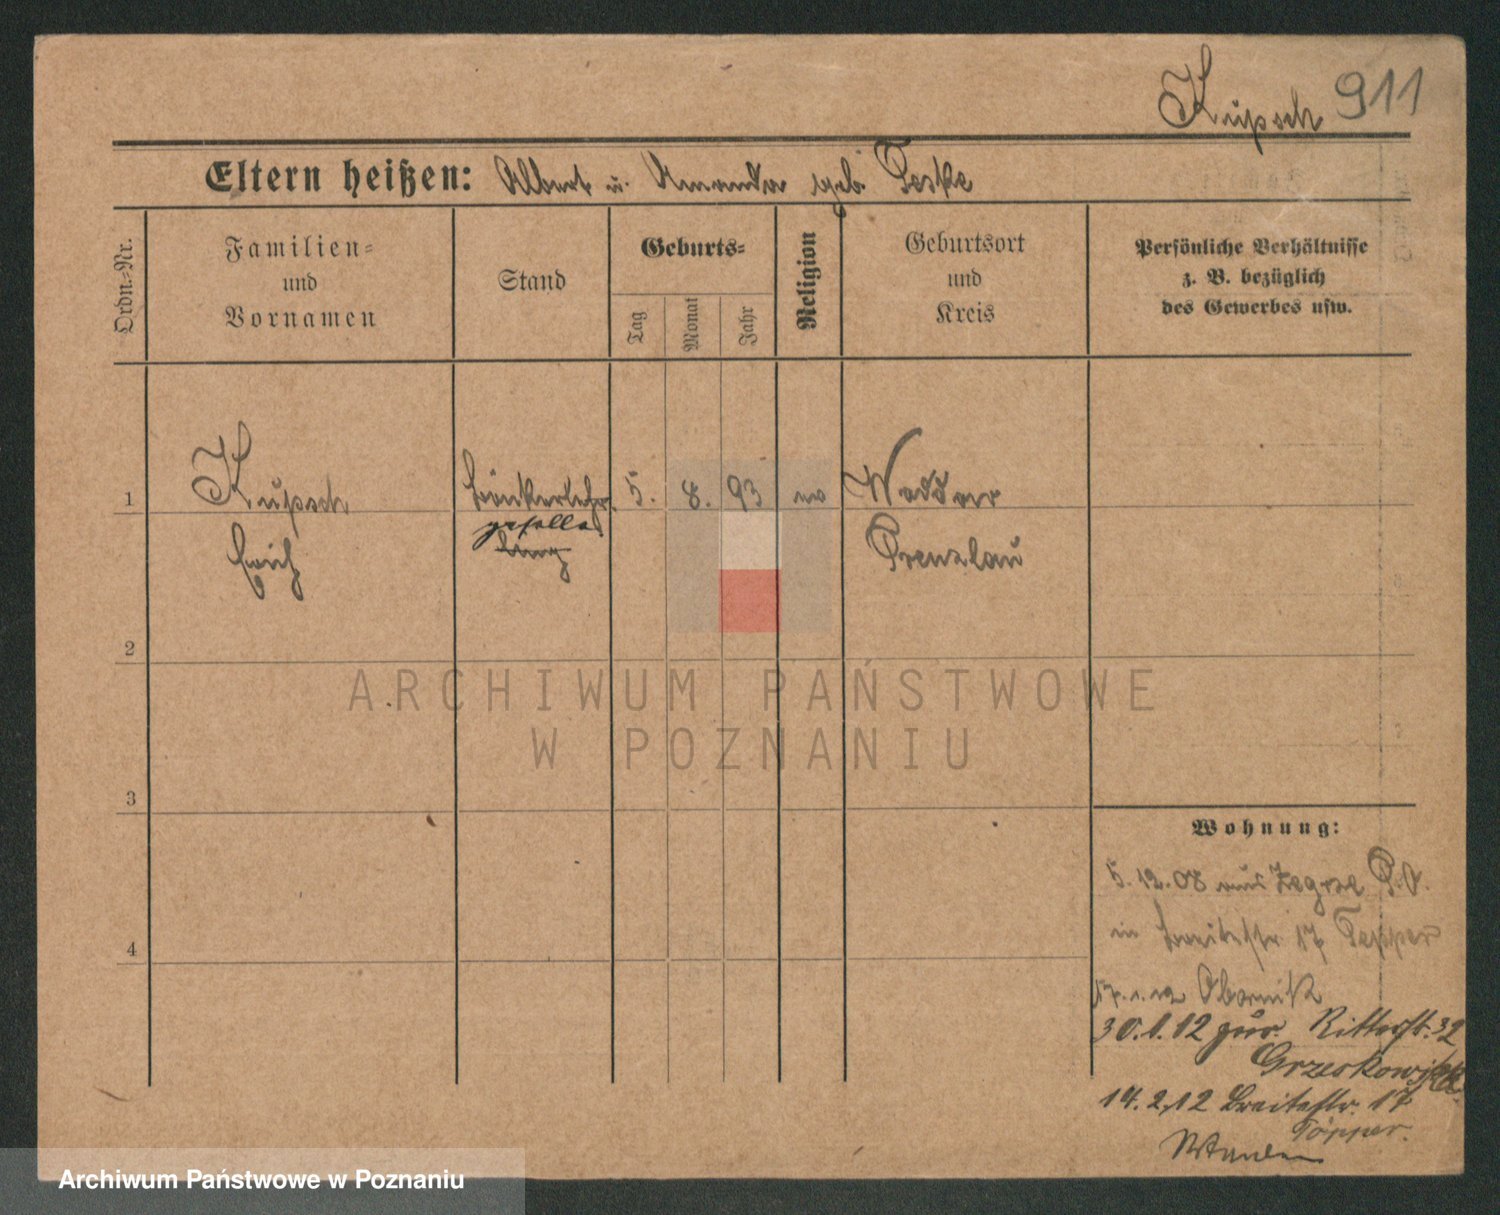 Kupsch 911
Eltern heißen: Albert u. Amanda geb. Teske
Ordn.-Nr.
Familien-
und
Vornamen
Stand
Geburts-
Tag
Monat
Jahr
Religion
Geburtsort
und
Kreis
Persönliche Verhältnisse
z. B. bezüglich
des Gewerbes usw.
1
Kupsch
Erich
geselle
5. 8. 93 ev
Prenzlau
2
3
4
Wohnung:
5. 12. 08 aus Zegrze P. O.
in Breitestr. 17 Tepper
17. 1. 12 Obornik
30.1.12 zur. Ritterstr. 32
Grzeskowiak
14.2.12 Breitestr. 17
Töpper.
ARCHIWUM PAŃSTWOWE
W POZNANIU
Archiwum Państwowe w Poznaniu